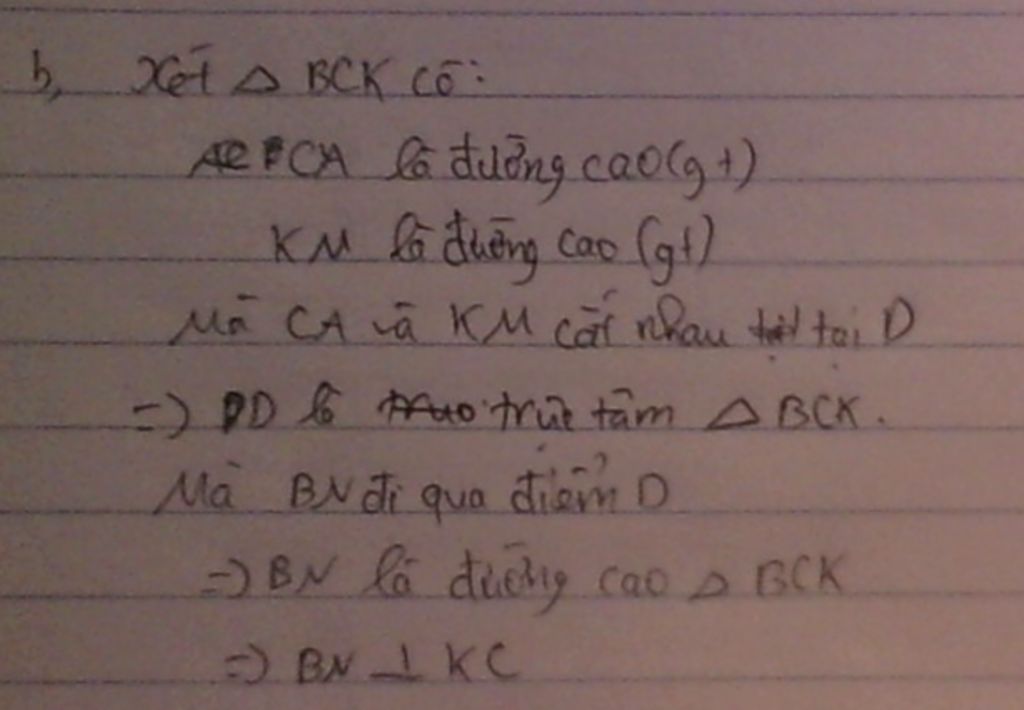 b, Xét △ BCK có:
CA là đường cao (gt)
KM là đường cao (gt)
Mà CA và KM cắt nhau tại D
=) D là trực tâm △ BCK.
Mà BN đi qua điểm D
=) BN là đường cao △ BCK
=) BN ⊥ KC